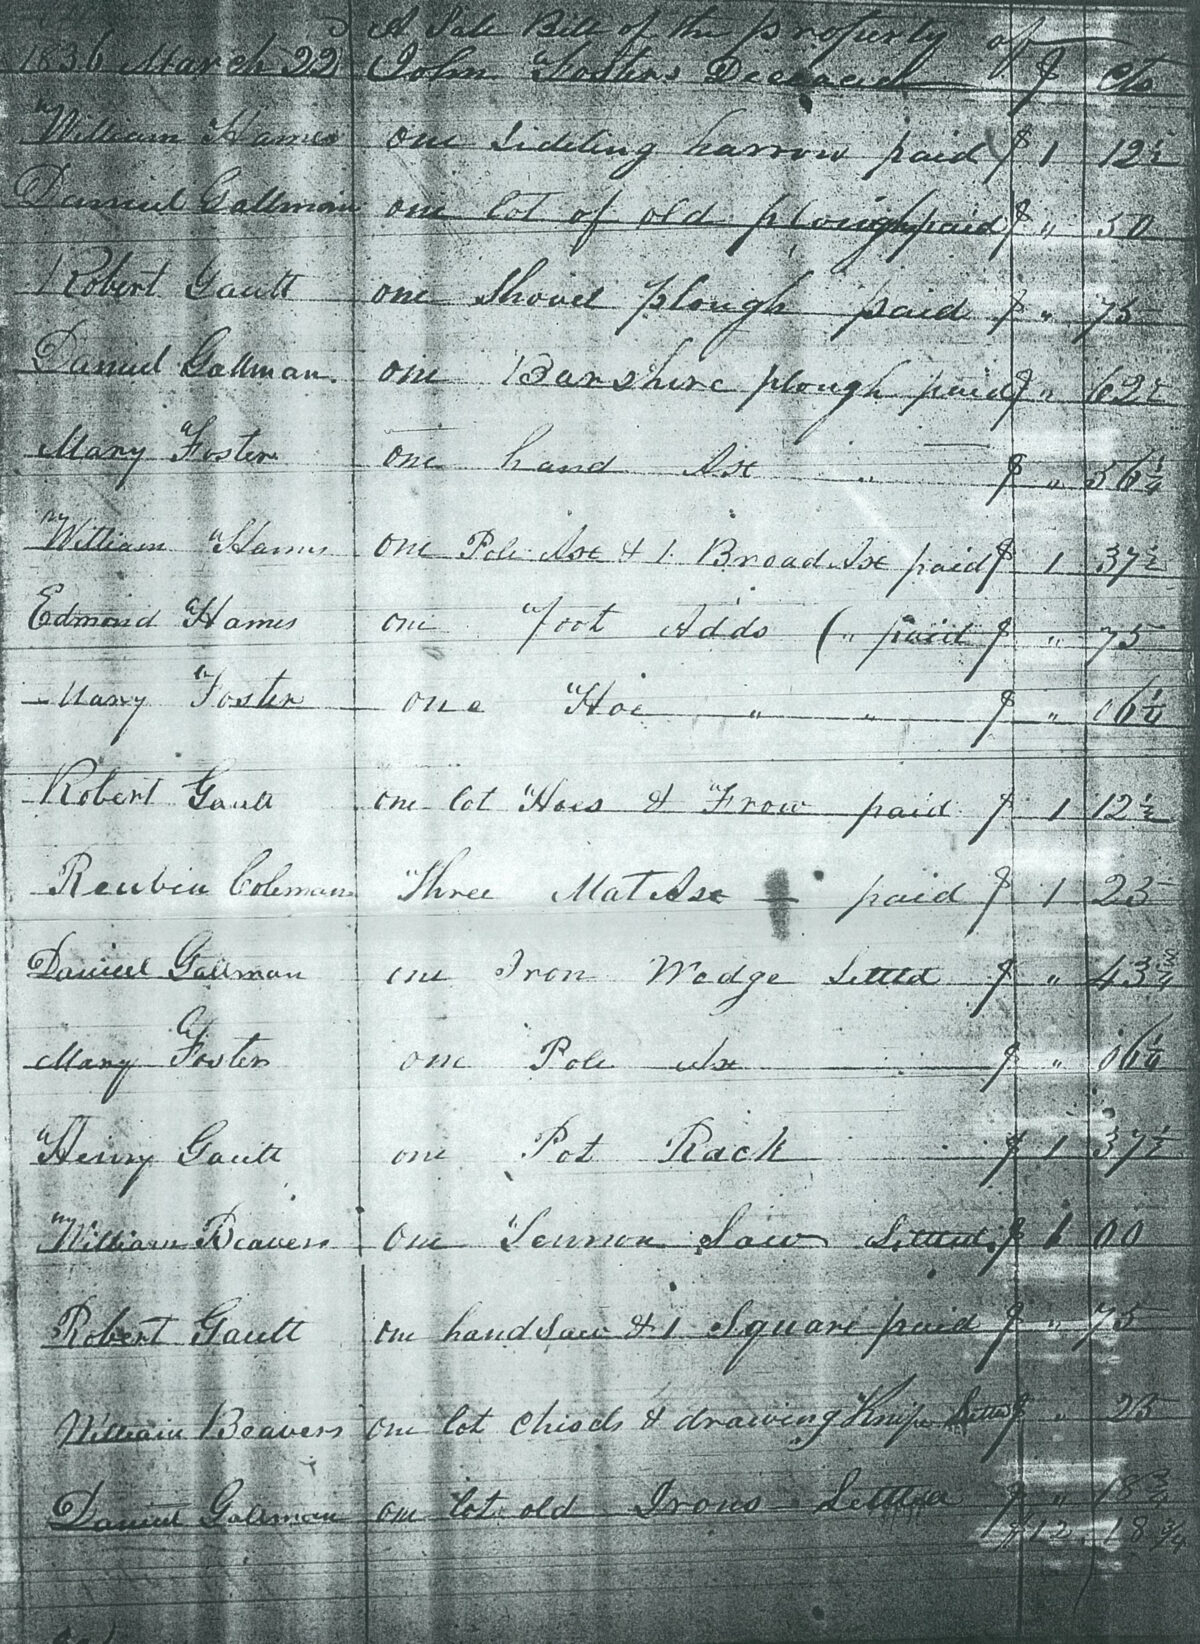 A Sale Bill of the property of
1836 March 22 John Fosters Deceaced $ Cts
William Hames one Sideling harrow paid $ 1 12½
Daniel Gallman one lot of old ploughs paid $ " 50
Robert Gault one Shovel plough paid $ " 75
Daniel Gallman. one Barshire plough paid $ " 62½
Mary Foster one hand Axe " $ " 56¼
William Hames one Pole Axe & 1 Broad Axe paid $ 1 37½
Edmond Hames one foot Adds ( " paid $ " 75
Mary Foster one Hoe " " $ " 06¼
Robert Gault one lot Hoes & Frow paid $ 1 12½
Reubin Coleman Three Mat Axe paid $ 1 25
Daniel Gallman one Iron Wedge Settled $ " 43¾
Mary Foster one Pole Axe $ " 06¼
Henry Gault one Pot Rack $ 1 37½
William Beavers one Tennon Saw Settled $ 1 00
Robert Gault one hand Saw & 1 Square paid $ " 75
William Beavers one lot Chisels & drawing Knife $ " 25
Daniel Gallman one lot old Irons Settled $ " 18¾
$ 12 18¾